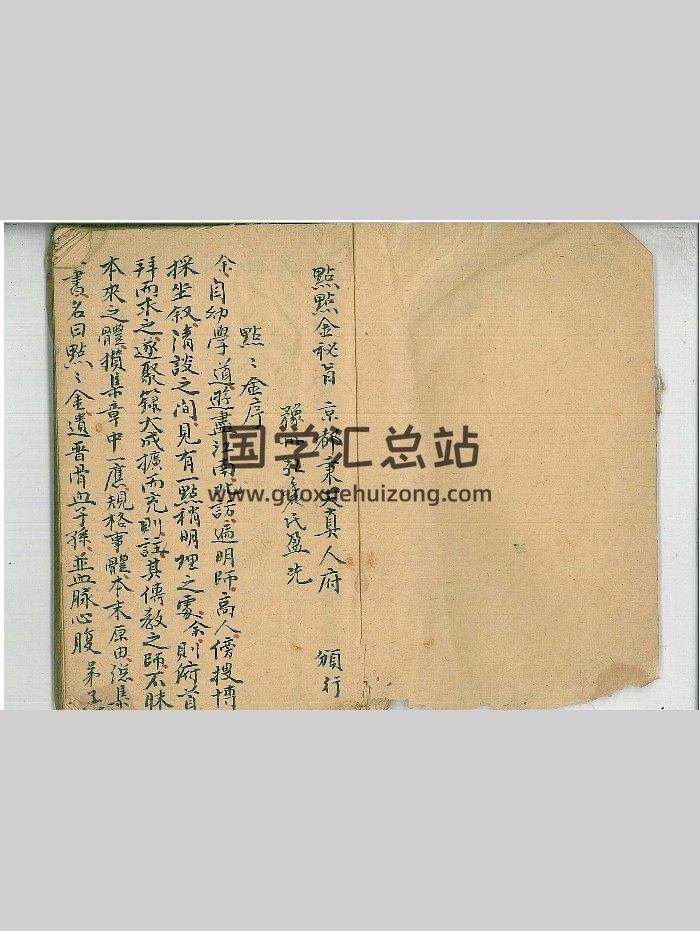 點點金秘旨 京都 真人府 頒行
氏盈先
點〻金序
余自幼學道遊盡江南 訪遍明師高人傍搜博
採坐叙清談之間見有一點稍明理之處余則府首
拜而求之遂聚録大成擴而充則註其傳教之師不昧
本來之體攢集章中一應規格事體本末原由 集
書名曰點〻金遺晋骨血子孫並血脉心腹 弟子
国学汇总站
www.guoxuehuizong.com